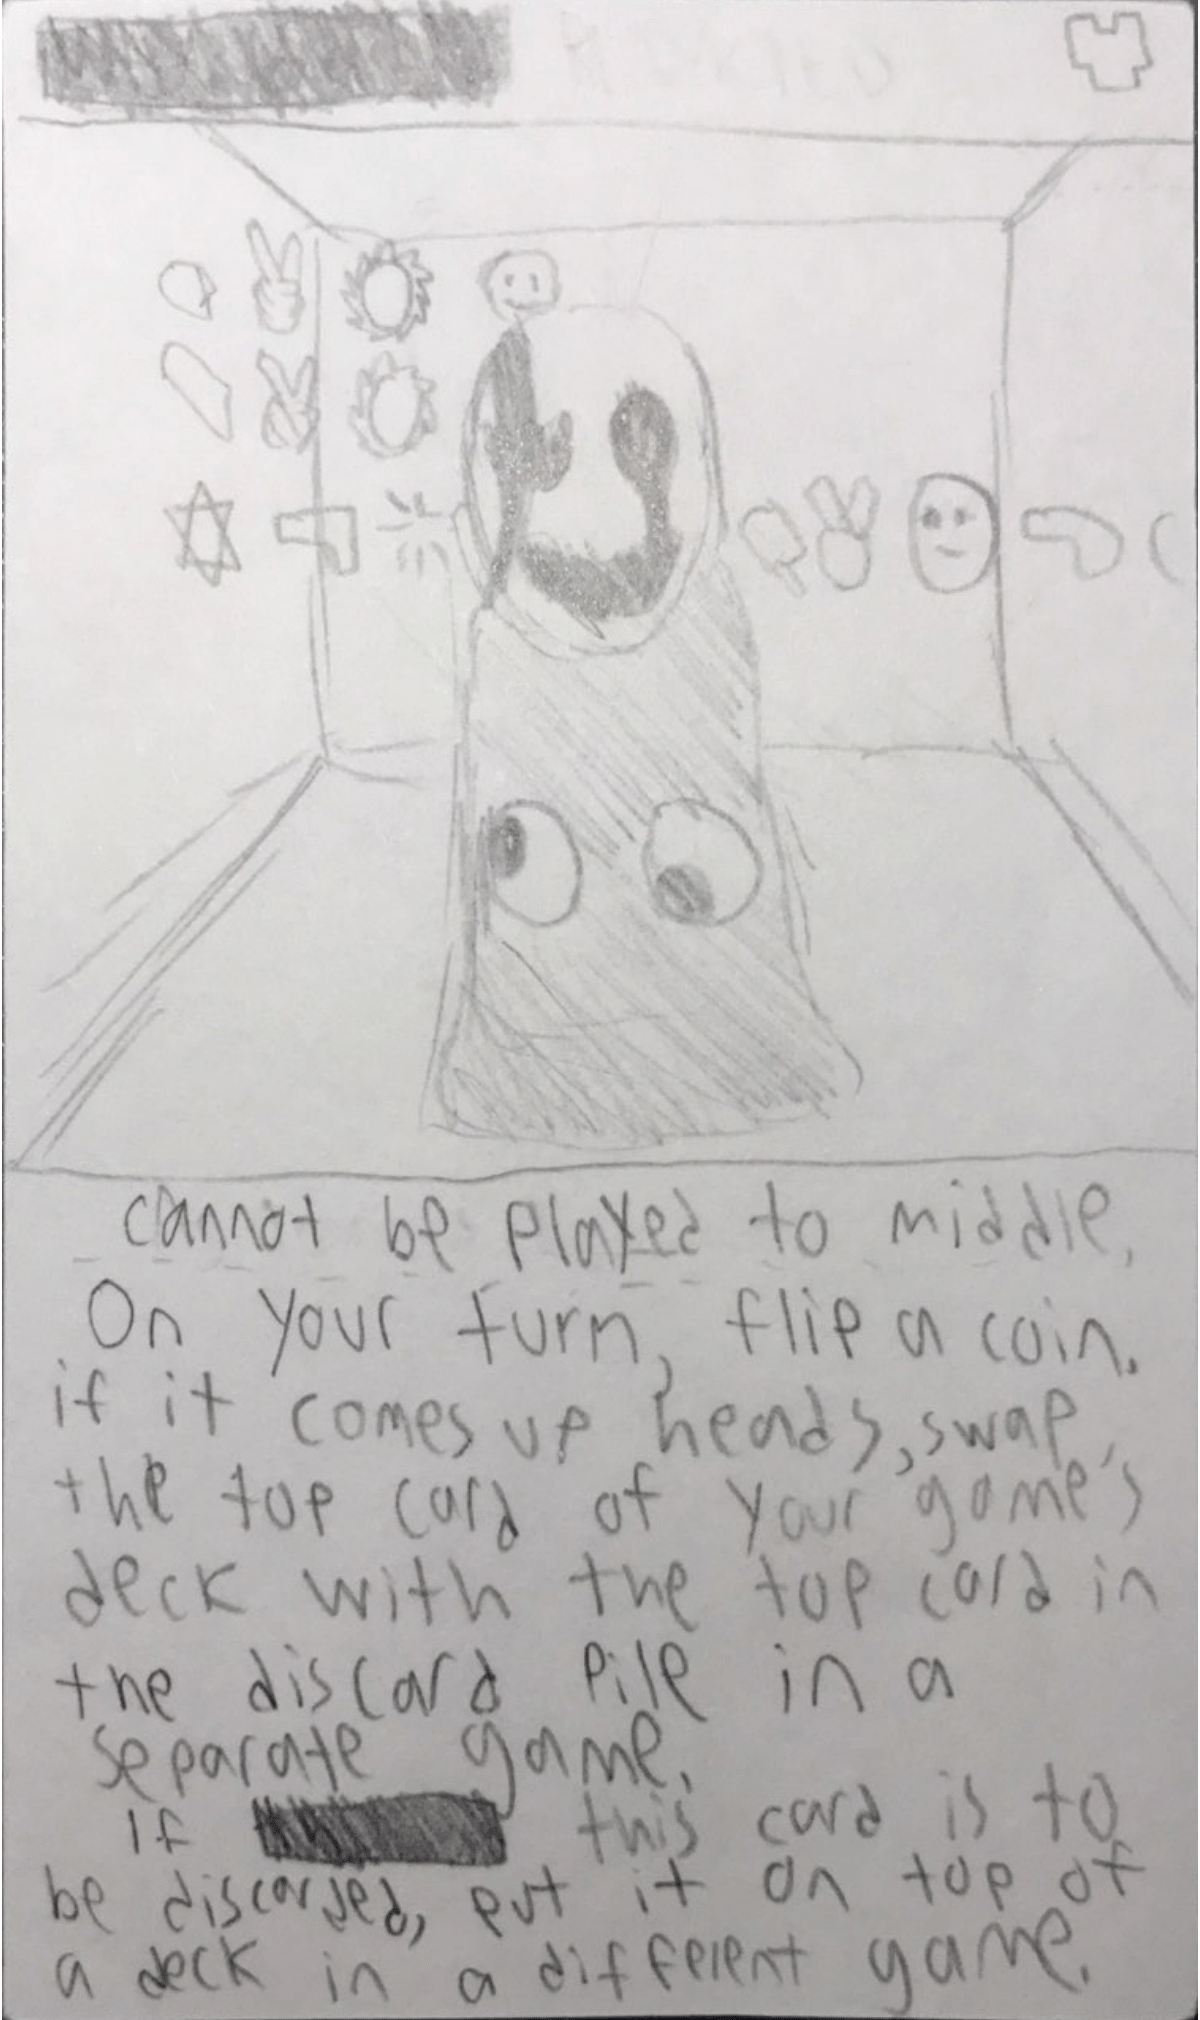 cannot be played to middle.
On your turn, flip a coin.
if it comes up heads, swap
the top card of your game's
deck with the top card in
the discard pile in a
separate game.
If this card is to
be discarded, put it on top of
a deck in a different game.